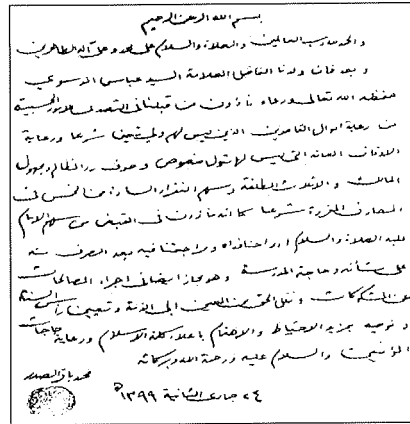 بسم الله الرحمن الرحيم
والحمد لله رب العالمين والصلاة والسلام على محمد وعلى آله الطاهرين
وبعد فان ولدنا الفاضل العلامة السيد عباس الموسوي
حفظه الله تعالى ورعاه مأذون من قبلنا في التصدي للامور الحسبية
من رعاية اموال القاصرين الذين ليس لهم ولي متعين شرعا ورعاية
الاوقاف العامة التي ليس لها متول منصوص وصرف رد المظالم ومجهول
المالك والاثلاث المطلقة وسهم الفقراء السادة من الخمس في
المصارف المقررة شرعا كما انه مأذون في القبض من سهم الامام
عليه الصلاة والسلام ارواحنا فداه ومراجعتنا فيه بعد الصرف منه
على شأنه وحاجة المدرسة وهو مجاز ايضا في اجراء المصالحات
على المشكوكات ونقل الحق من العين الى الذمة وتعيين رأس السنة
و نوصيه بمزيد الاحتياط والاهتمام باعلاء كلمة الاسلام ورعاية حاجات
المؤمنين والسلام عليه ورحمة الله وبركاته
محمد باقر الصدر
٢٤ جمادى الثانية ١٣٩٩ هـ